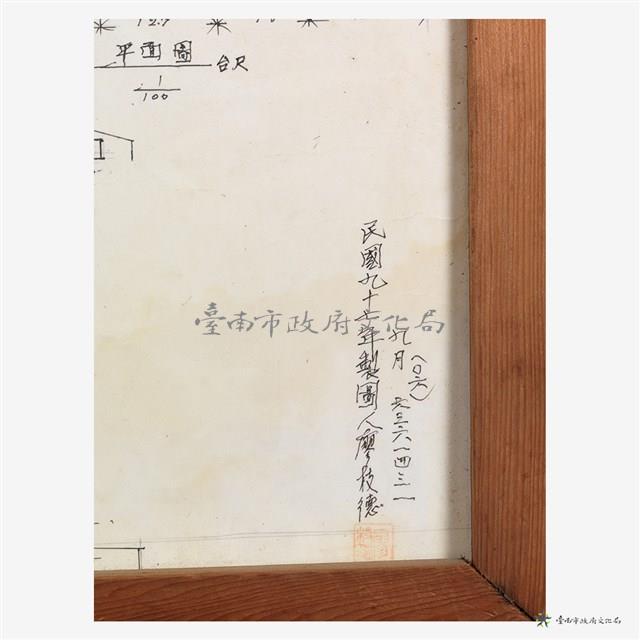 12.9
平面圖
台尺
1
100
民國九十七年製圖人廖枝德
九月
(〇六)
六三六一四三一
臺南市政府文化局
臺南市政府文化局